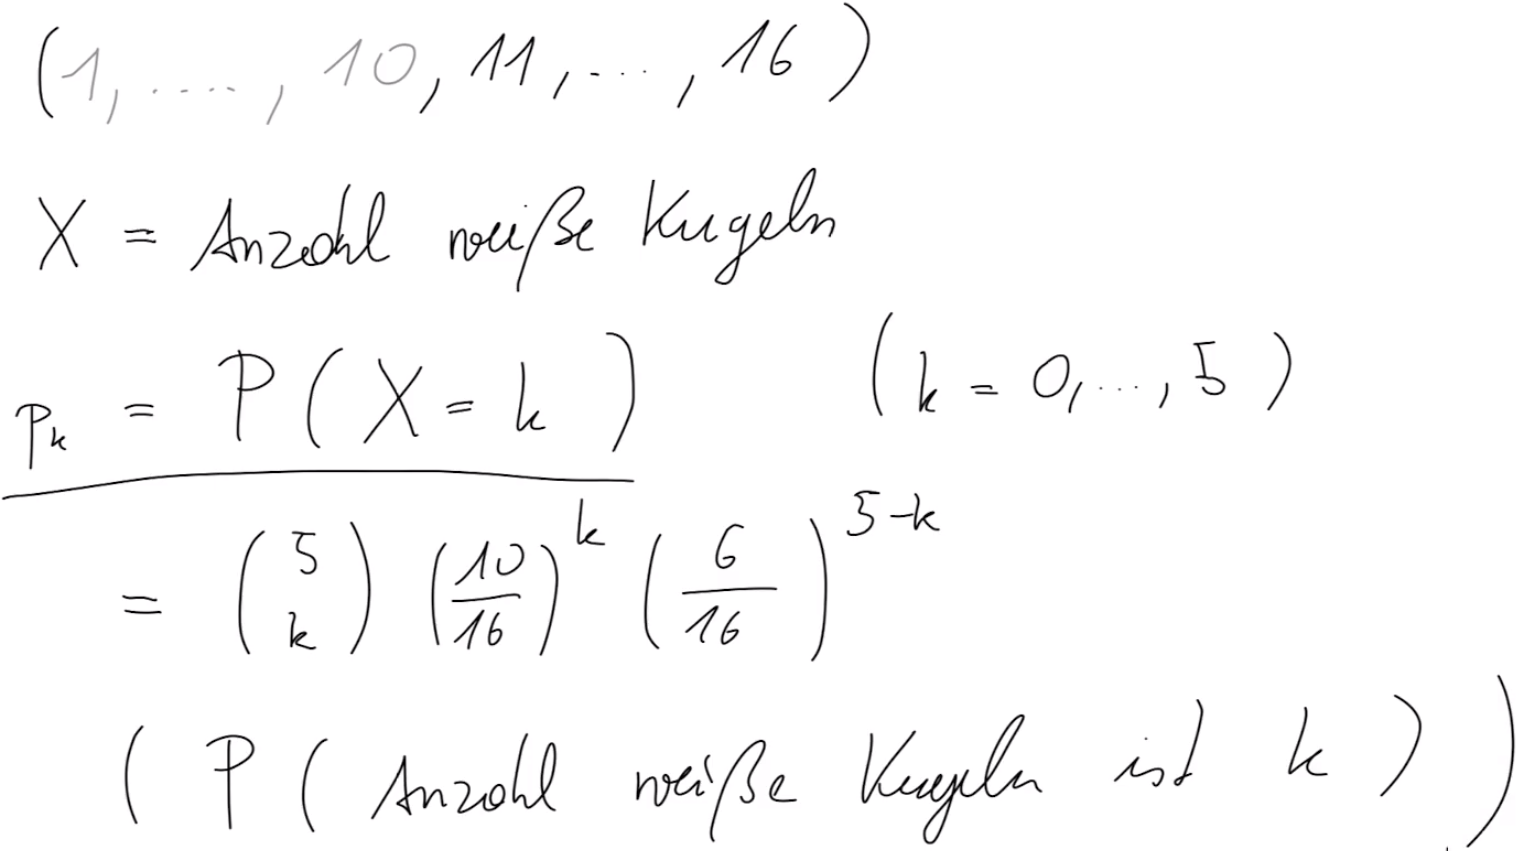 (1, ...., 10, 11, ..., 16)
X = Anzahl weiße Kugeln
p_k = P(X = k) (k = 0, ..., 5)
= \binom{5}{k} \left(\frac{10}{16}\right)^k \left(\frac{6}{16}\right)^{5-k}
(P(Anzahl weiße Kugeln ist k))